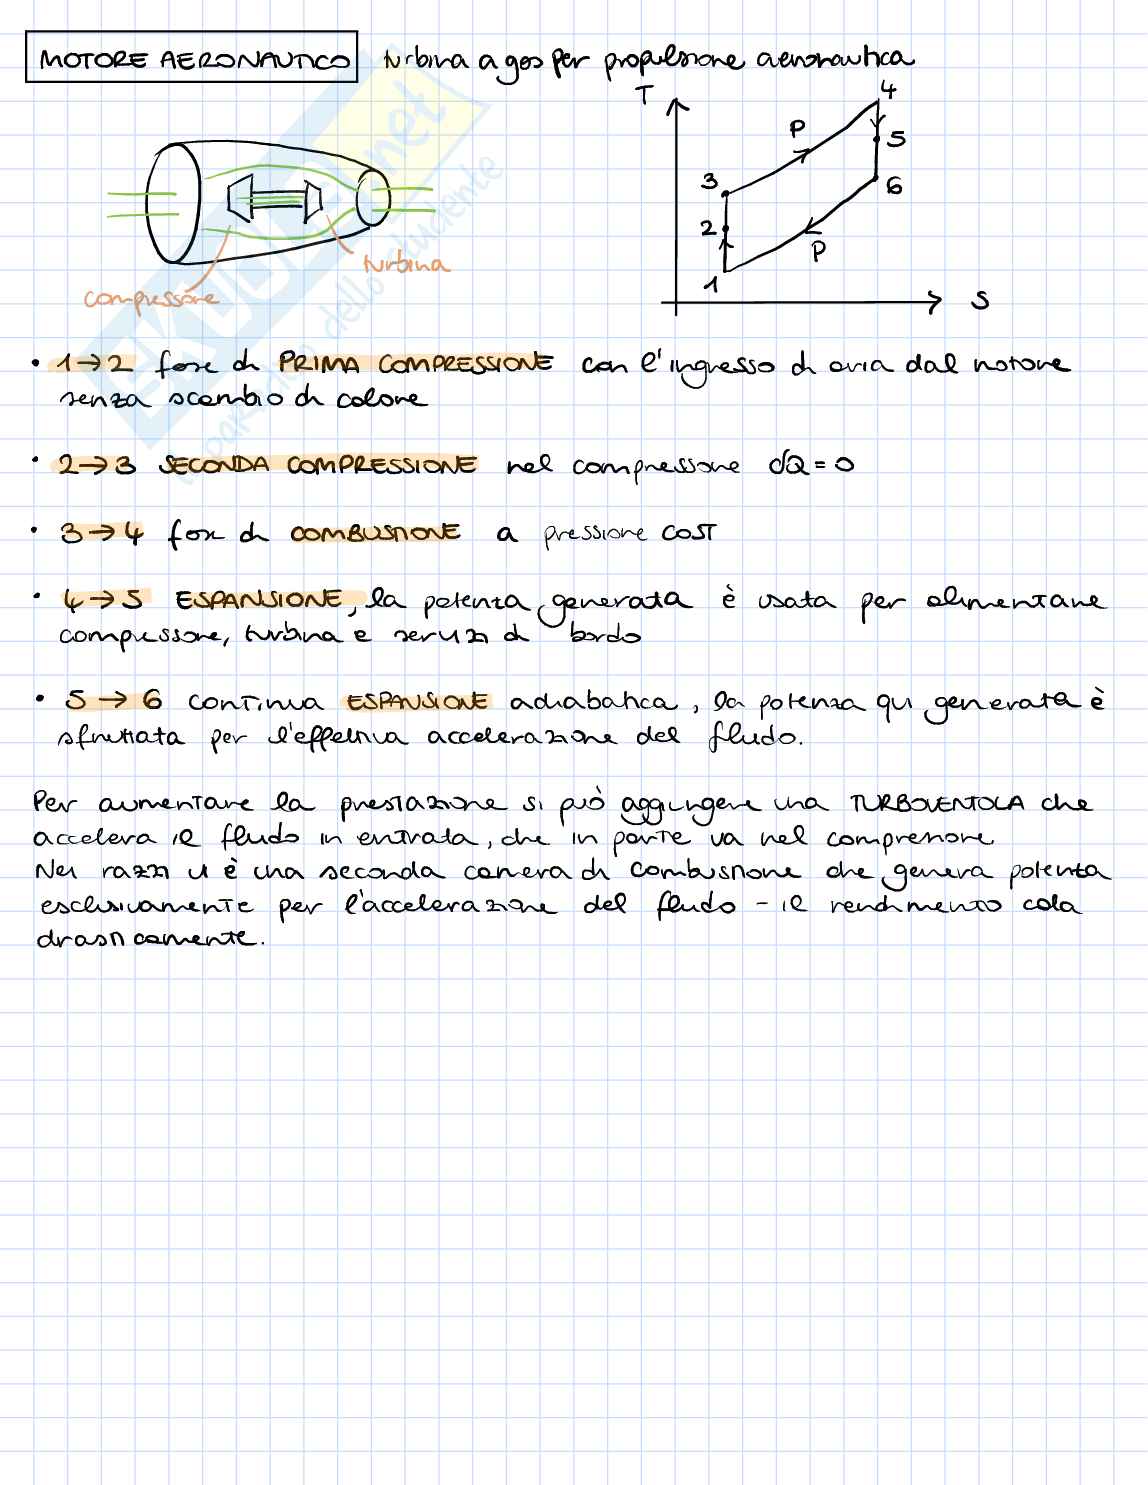 MOTORE AERONAUTICO turbina a gas per propulsione aeronautica
T
4
P
5
3
6
2
P
1
S
turbina
compressore
• 1→2 fase di PRIMA COMPRESSIONE con l'ingresso di aria dal motore
senza scambio di calore
• 2→3 SECONDA COMPRESSIONE nel compressore dQ=0
• 3→4 fase di COMBUSTIONE a pressione COST
• 4→5 ESPANSIONE, la potenza generata è usata per alimentare
compressore, turbina e servizi di bordo
• 5→6 continua ESPANSIONE adiabatica, la potenza qui generata è
sfruttata per l'effettiva accelerazione del fluido.
Per aumentare la prestazione si può aggiungere una TURBOVENTOLA che
accelera il fluido in entrata, che in parte va nel compressore.
Nei razzi vi è una seconda camera di combustione che genera potenza
esclusivamente per l'accelerazione del fluido - il rendimento cala
drasticamente.